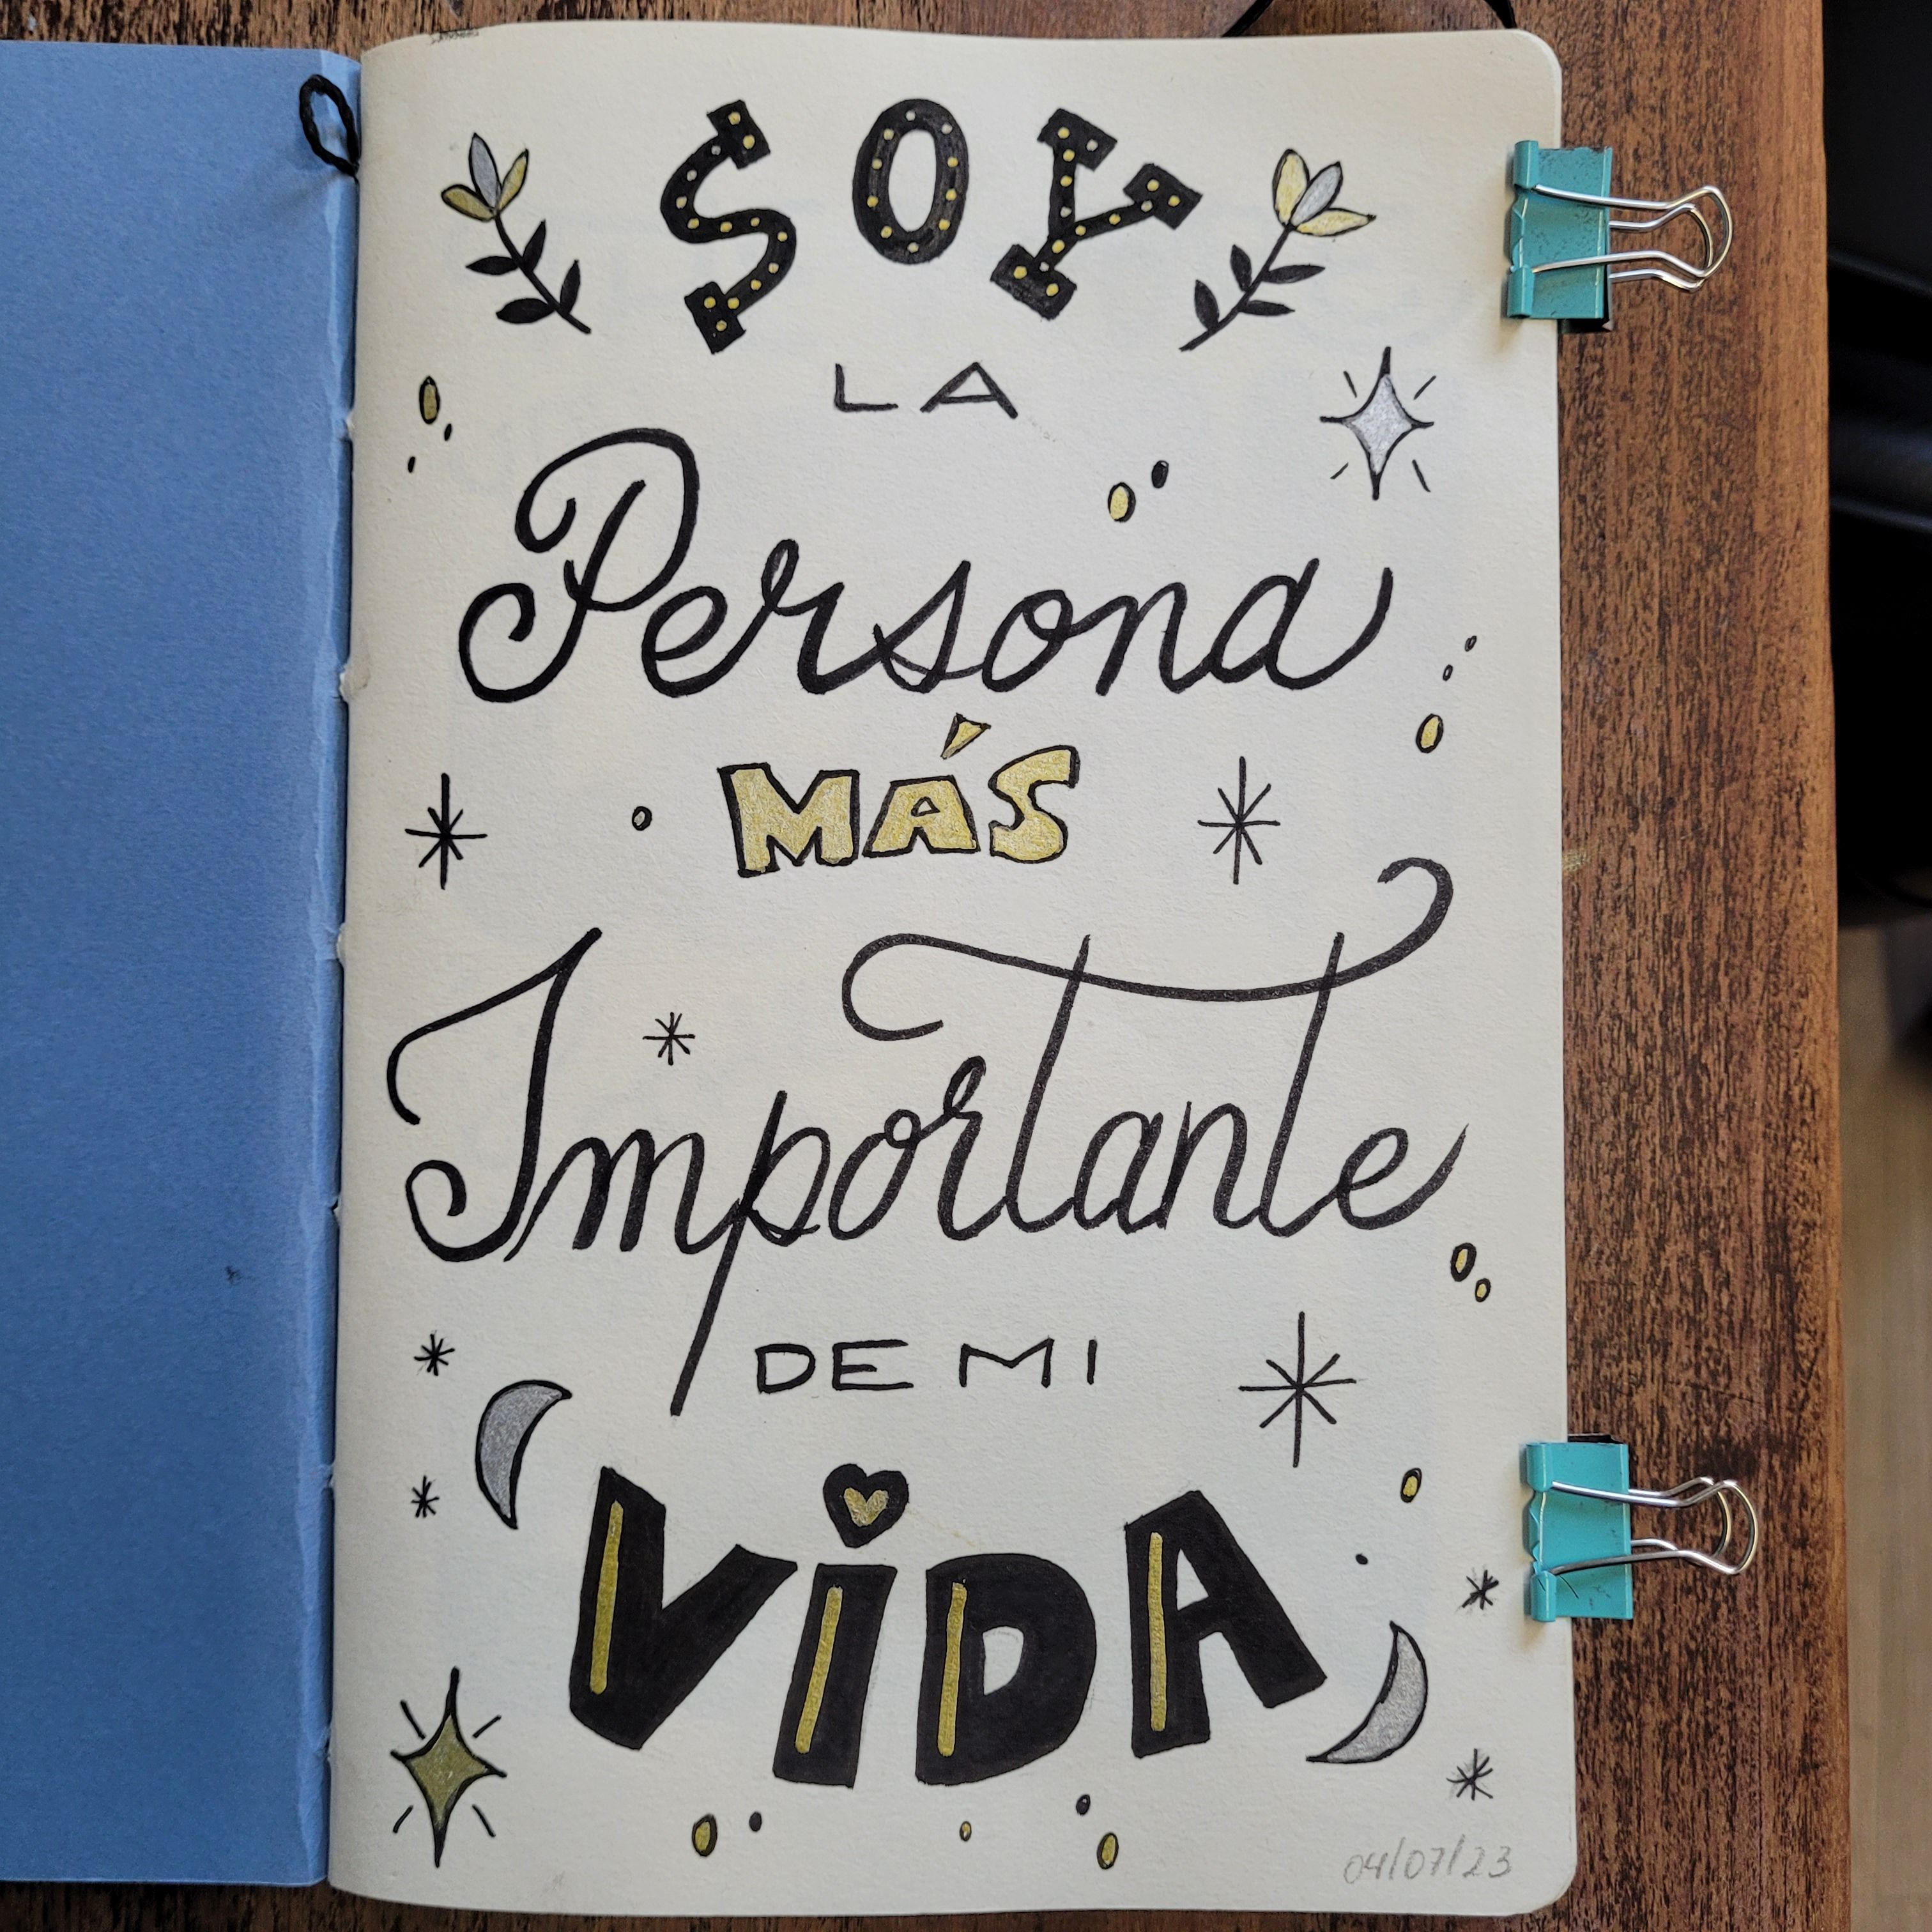 SOY
LA
Persona
MÁS
Importante
DE MI
ViDA
04/07/23